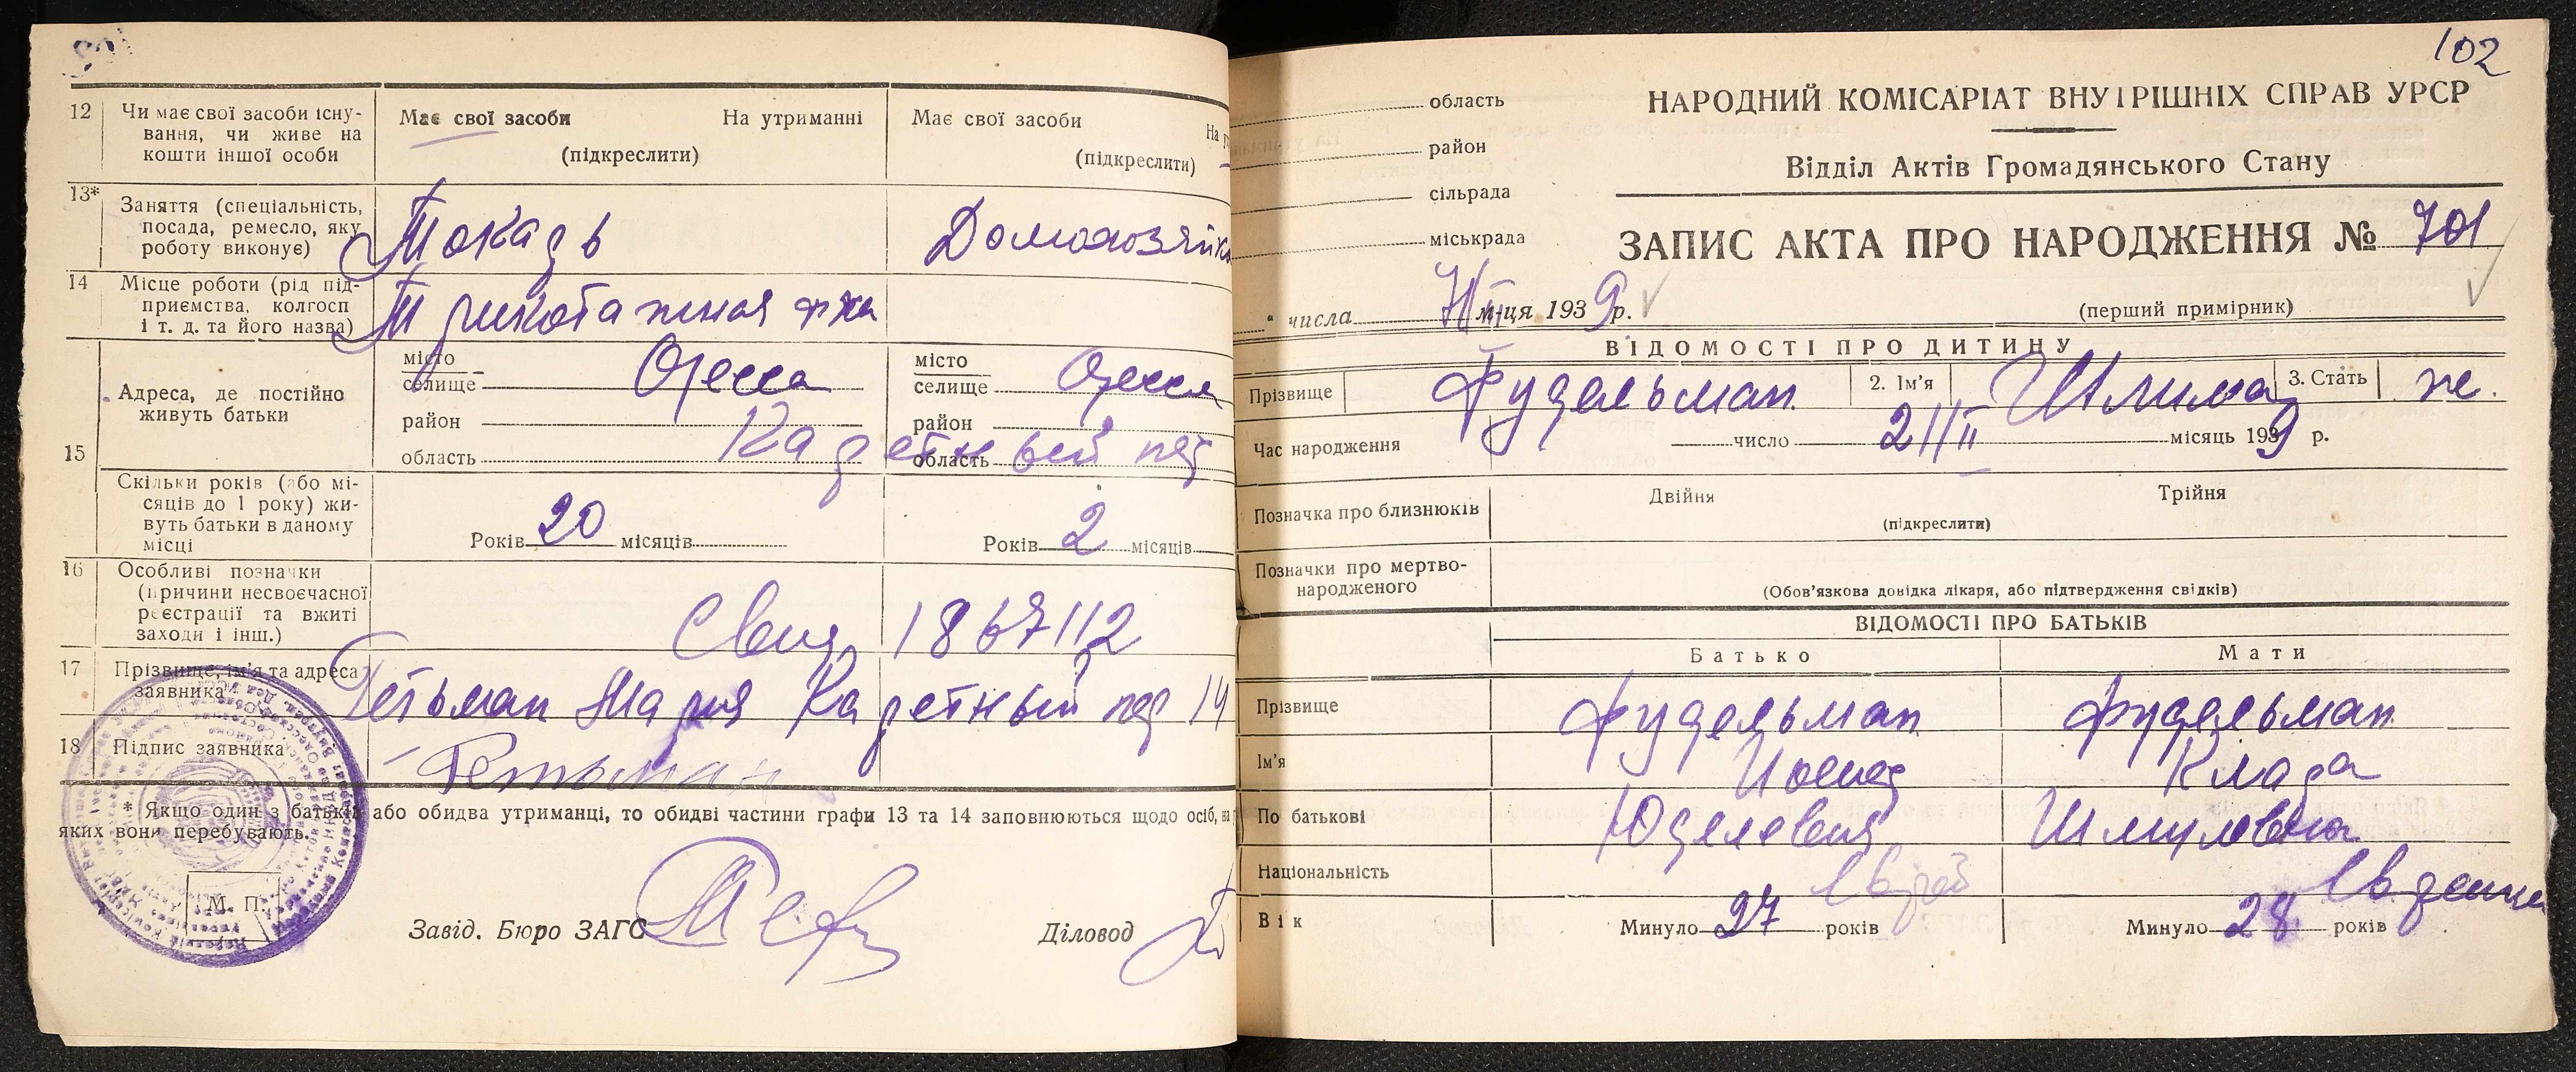 12 Чи має свої засоби існу-
вання, чи живе на
кошти іншої особи
Має свої засоби На утриманні
(підкреслити)
Має свої засоби На
(підкреслити)
13* Заняття (спеціальність,
посада, ремесло, яку
роботу виконує)
Токарь Домохозяйка
14 Місце роботи (рід під-
приємства, колгосп
і т. д. та його назва)
Трикотажная ф-ка
15 Адреса, де постійно
живуть батьки
місто
селище Одесса
район
область
місто
селище Одесса
район
область
Каретный пер
Скільки років (або мі-
сяців до 1 року) жи-
вуть батьки в даному
місці
Років 20 місяців
Років 2 місяців
16 Особливі позначки
(причини несвоєчасної
реєстрації та вжиті
заходи і інш.)
1867112
17 Прізвище, ім'я та адреса
заявника
Гетьман Мария Каретный пер 14
18 Підпис заявника
Гетьман
* Якщо один з батьків або обидва утриманці, то обидві частини графи 13 та 14 заповнюються щодо осіб, на
яких вони перебувають.
М. П.
Завід. Бюро ЗАГС
Діловод
102
область
район
сільрада
міськрада
НАРОДНИЙ КОМІСАРІАТ ВНУТРІШНІХ СПРАВ УРСР
Відділ Актів Громадянського Стану
ЗАПИС АКТА ПРО НАРОДЖЕННЯ № 701
" числа 7/III м-ця 1939 р.
(перший примірник)
ВІДОМОСТІ ПРО ДИТИНУ
Прізвище Фудельман 2. Ім'я 3. Стать ж.
Час народження число 21/II місяць 1939 р.
Позначка про близнюків Двійня Трійня
(підкреслити)
Позначки про мертво-
народженого
(Обов'язкова довідка лікаря, або підтвердження свідків)
ВІДОМОСТІ ПРО БАТЬКІВ
Батько Мати
Прізвище Фудельман Фудельман
Ім'я Иосиф Клара
По батькові Юделевич Шмиловна
Національність Еврей Еврейка
Вік Минуло 27 років Минуло 28 років